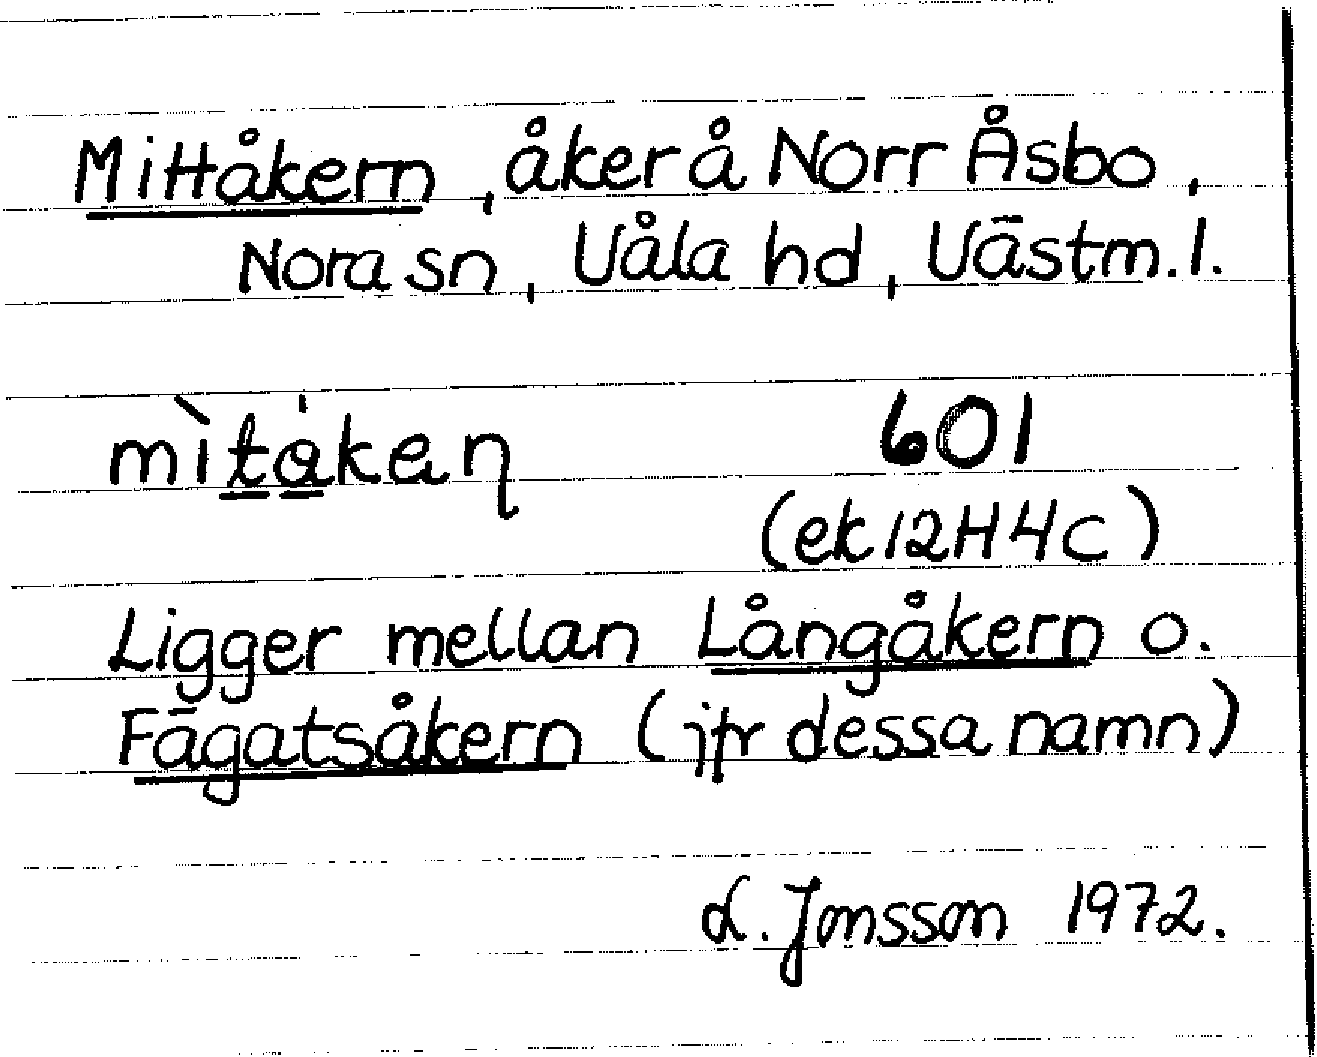 Mittåkern, åker å Norr Åsbo,
Nora sn, Våla hd, Västm. l.
mìtåkaɳ 601
(ek 12H4c)
Ligger mellan Långåkern o.
Fägatsåkern (jfr dessa namn)
L. Jonsson 1972.